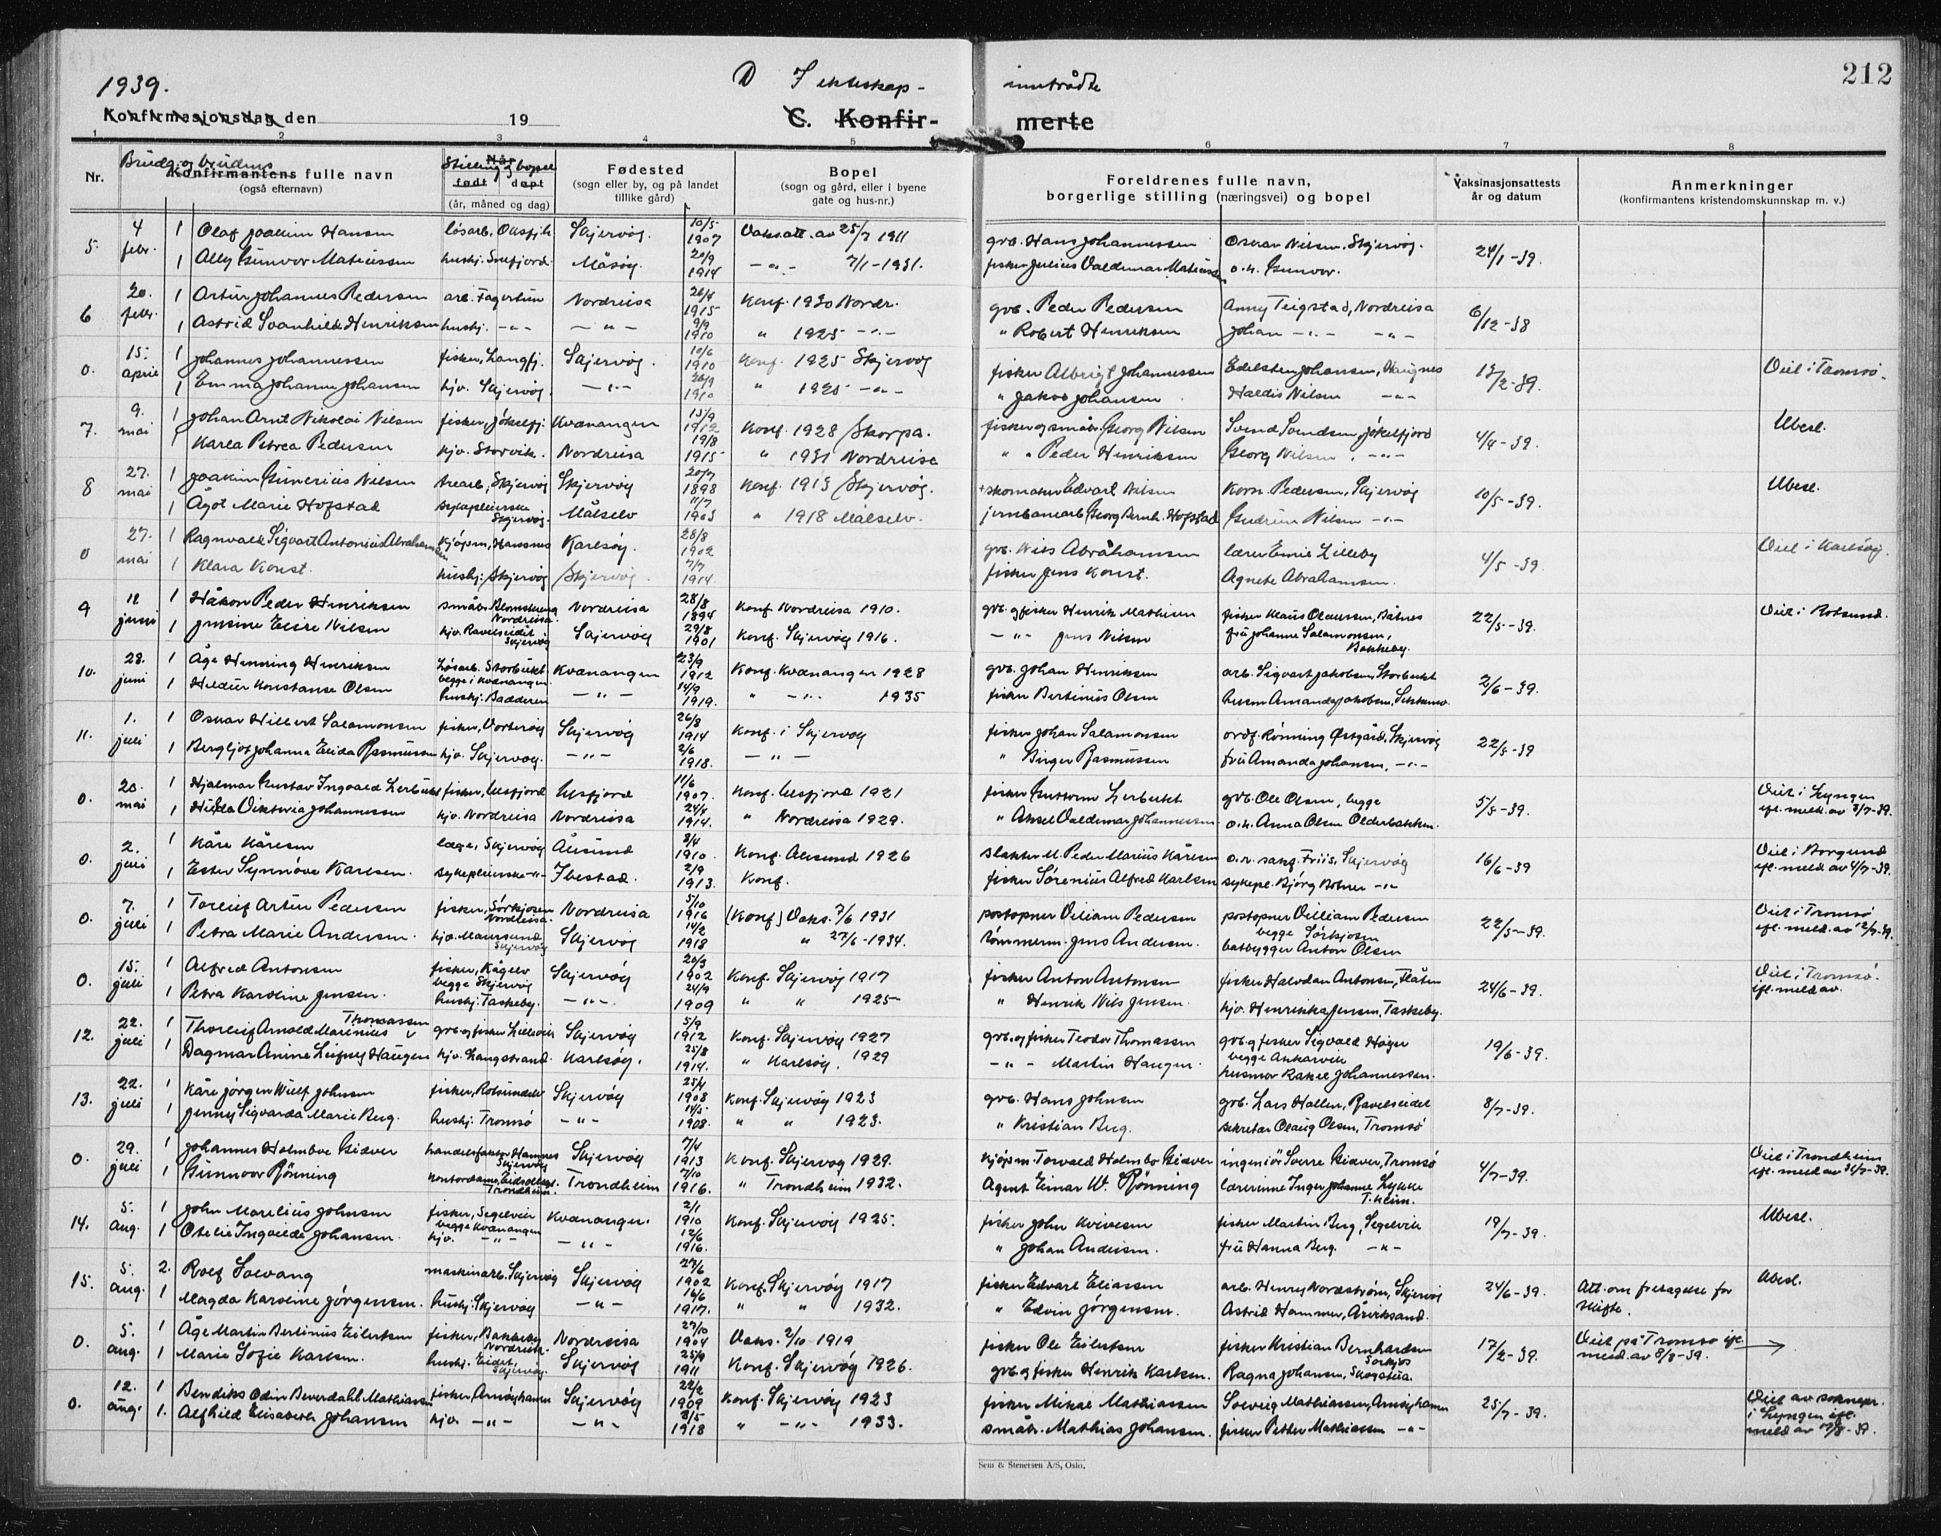 1939.
D I ekteskap- inntrådte
212
Konfirmasjonsdag den 19
C. Konfir- merte
1 2 3 4 5 6 7 8
Nr.
Brudg. og brudens
Konfirmantens fulle navn
(også efternavn)
Stilling og bopel
Når
født døpt
(år, måned og dag)
Fødested
(sogn eller by, og på landet
tillike gård)
Bopel
(sogn og gård, eller i byene
gate og hus-nr.)
Foreldrenes fulle navn,
borgerlige stilling (næringsvei) og bopel
Vaksinasjonsattests
år og datum
Anmerkninger
(konfirmantens kristendomskunnskap m. v.)
5. 4 febr. 1 Olaf Joakim Hansen løsarb. Skjervøy. 10/5 1907 Vaks.att. av 25/7 1911 gvb. Hans Johannessen Oskar Nilsen, Skjervøy. 24/1-39.
1 Ally Gunvor Mathissen hushj. Måsøy. 20/9 1914 -"- 7/1-1931. fisker Julius Valdemar o.h. Gunvor.
6 20. febr. 1 Artur Johannes Pedersen arb. Nordreisa 26/4 1915 Konf. 1930 Nordr. gvb. Peder Pedersen Anny Teigstad, Nordreisa 6/12-38
1 Astrid Svanhild Henriksen hushj. -"- -"- 9/9 1910 " 1925 -"- " Robert Henriksen Johan -"- -"-
0. 15. april 1 Johannes Johannessen fisker, Langfj. Skjervøy. 10/6 1910 Konf. 1925 Skjervøy fisker Albrigt Johannessen Edelsten Johansen, Haugnes 13/2-39. Viet i Tromsø.
1 Emma Johanne Johansen hjv. Skjervøy. -"- 26/9 1910 " 1925 -"- " Jakob Johansen Haldis Nilsen -"-
7. 9. mai 1 Johan Arnt Nikolai Nilsen fisker, Jøkelfj. Kvænangen 15/9 1912 Konf. 1928 Skorpa. fisker og småbr. Georg Nilsen Svend Svendsen, Jøkelfjord 4/4-39. Ubesl.
1 Karla Petrea Pedersen hjv. Storvik. Nordreisa 19/8 1915 " 1931 Nordreisa " " Peder Henriksen Georg Nilsen. -"-
8 27. mai 1 Joakim Gunerius Nilsen Skjervøy Skjervøy 20/7 1898 Konf. 1913 Skjervøy. skomaker Edvart Nilsen Korn. Pedersen, Skjervøy 10/5-39. Ubesl.
1 Ågot Marie Hofstad sykepleierske Skjervøy. Målselv 11/7 1903 " 1918 Målselv. jernbanearb. Georg Bernh. Hofstad Gudrun Nilsen -"-
0 27. mai 1 Ragnvald Sigvart Antonius Abrahamsen kjøpm. Hamnes Karlsøy. 28/8 1902 gvb. Nils Abrahamsen lærer Emil Lilleby 4/5-39. Viet i Karlsøy.
1 Klara Konst. hushj. Skjervøy Skjervøy. 7/7 1914 fisker Jens Konst. Agnete Abrahamsen.
9 12 juni 1 Håkon Peder Henriksen småbr. Nordreisa Nordreisa 28/8 1894 Konf. Nordreisa 1910. gvb. og fisker Henrik Mathisen fisker Klaus Olaussen, Båtnes 22/5-39. Viet i Rotsund.
1 Elise Nilsen hjv. Ravelseidet Skjervøy Skjervøy 29/8 1901 Konf. Skjervøy 1916. -"- Jens Nilsen fru Johanne Salamonsen, Bakkeby.
10. 23. juni 1 Åge Henning Henriksen Løsarb. Storbukt Kvænangen 23/9 1912 Konf. Kvænangen 1928 gvb. Johan Henriksen arb. Sigvart Jakobsen, Storbukt 2/6-39.
begge i Kvænangen
1 Hildur Konstanse Olsen hushj. Badderen -"- 14/9 1919. " -"- 1935 fisker Bertinus Olsen Amanda Jakobsen,
11. 1. juli 1 Oskar Hilbert Salamonsen fisker, Vorterøy Skjervøy 26/8 1914 Konf. i Skjervøy fisker Johan Salamonsen ordf. Rønning Østgård, Skjervøy 22/5-39
1 Bergljot Johanna Elida Rasmussen hjv. Skjervøy. -"- 2/6 1918. -"- " Birger Rasmussen fru Amanda Johansen, -"-
0. 20. mai 1 Hjalmar Gustav Ingvald Lerbukt fisker, Ulsfjord Ulsfjord 11/6 1907. Konf. Ulsfjord 1921 fisker Guttorm Lerbukt gvb. Ole Olsen, begge 5/5-39. Viet i Lyngen
ifl. meld. av 3/7-39.
1 Hilda Viktoria Johannessen hjv. Nordreisa Nordreisa 24/4 1914. " Nordreisa 1929. " Aksel Valdemar Johannessen o.h. Anna Olsen Olderbakken.
0. 2. juli 1 Kåre Kåresen læge, Skjervøy Ålesund 3/4 1910. Konf. Ålesund 1926 slakter M. Peder Marius Kåresen o.r. sakf. Friis, Skjervøy 16/6-39 Viet i Borgund
ifl. meld av 4/7-39.
1 Ester Synnøve Karlsen. sykepleierske -"- Ibestad. 2/9 1913. Konf. fisker Sørenius Alfred Karlsen sykepl. Bjørg -"-
0. 7. juli 1 Toreif Artur Pedersen fisker, Sørkjosen Nordreisa. Nordreisa 5/10 1916 (Konf) Vaks. 7/6 1931 postopner Viliam Pedersen postopner Villiam Pedersen 22/5-39. Viet i Tromsø
ifl. meld. av 12/7-39.
begge Sørkjosen
1 Petra Marie Andersen. hjv. Maursund Skjervøy Skjervøy 14/2 1918 " 27/6-1934. tømmerm. Jens Andersen. båtbygger Anton Olsen
0. 15. juli 1 Alfred Antonsen fisker, Kågelv Skjervøy 20/3 1902 Konf. Skjervøy 1917 fisker Anton Antonsen fisker Halvdan Antonsen, Flåten 24/6-39. Viet i Tromsø.
ifl. meld av
begge Skjervøy
1 Petra Karoline Jensen. hushj. Taskeby. -"- 24/9 1909 " " 1925 " Henrik Nils Jensen. hjv. Henrikka Jensen, Taskeby.
12. 22. juli 1 Thoreif Arnold Marenius Thomassen gvb. og fisker Skjervøy 5/9 1912 Konf. Skjervøy 1927 gvb. og fisker Teodor Thomassen gvb. og fisker Sigvald Høyer 19/6-39.
begge Ankervik
1 Dagmar Anine Haugen hjv. Langstrand. Karlsøy. 25/8 1914. " Karlsøy. 1929 -"- Martin Haugen. husmor Rakel Johannessen.
13. 22. juli 1 Kåre Jørgen Wulf Johnsen fisker, Rotsundelv Skjervøy 25/4 1908 Konf. Skjervøy 1923 gvb. Hans Johnsen gvb. Lars Hallen, Ravelseidet 8/7-39.
1 Jenny Sigvarda Marie Berg. hushj. Tromsø -"- 14/5 1908. " " 1923. " Kristian Berg. sekretær Olaug Olsen, Tromsø
0. 29. juli 1 Johannes Holmboe Giæver Hamnes Skjervøy Skjervøy 7/4 1913 Konf. Skjervøy 1929. kjøpm. Torvald Holmbo Giæver ingeniør Sverre Giæver, Tromsø 4/7-39. Viet i Trondheim
ifl. meld av 31/7-39.
1 Gunnvor Rønning kontordame, Trondheim. Trondheim 7/10 1916. " Trondheim 1932. Agent Einar W. Rønning lærerinne Inger Johanne Lykke T.heim.
14. 5. aug. 1 John Marelius Johnsen fisker, Segelvik Kvænangen. 2/1 1910 Konf. Skjervøy 1925. fisker John fisker Martin Berg, Segelvik 19/7-39. Ubesl.
begge Kvænangen
1 Otelie Ingvilde Johansen. hjv. -"- -"- 12/6 1916. " Johan Andersen. fru Hanna Berg. -"-
15. 5. aug. 2. Rolf Solvang maskinarb. Skjervøy Skjervøy 27/6 1902 Konf. Skjervøy 1917 fisker Edvart Eliassen arb. Henry Nordstrøm, Skjervøy 24/6-39. Att. om foretagelse for
skifte. Ubesl.
1 Magda Karoline Jørgensen. hushj. Skjervøy -"- 16/6 1917. " " 1932. " Edvin Jørgensen. Astrid Hammer, Årviksand.
0 5. aug. 1 Åge Martin Bertinius Eilertsen fisker, Bakkeby Nordreisa Nordreisa 27/10 1904 Vaks. 2/10-1919 fisker Ole Eilertsen fisker Kristian Bernhardsen Sørkjos 17/2-39. Viet på Tromsø ifl.
meld av 8/8-39.
1 Marie Sofie Karlsen. hushj. Eidet, Skjervøy. Skjervøy 25/9 1911 Konf. Skjervøy 1926. gvb. og fisker Henrik Karlsen. Ragna Johansen,
0. 12. aug. 1 Bendiks Odin Beverdahl Mathiassen fisker, Arnøyhamn Skjervøy 22/2 1909 Konf. Skjervøy 1923 fisker Mikal Mathiassen Solveig Mathiassen, Arnøyhamn 25/7-39. Viet av soknepr.
i Lyngen ifl.
meld av 17/8-39.
1. Alfhild Elisabeth Johansen hjv. -"- -"- 8/5 1918 " -"- 1933. småbr. Mathias Johansen. fisker Petter Mathiassen -"-
Sem & Stenersen A/S, Oslo.